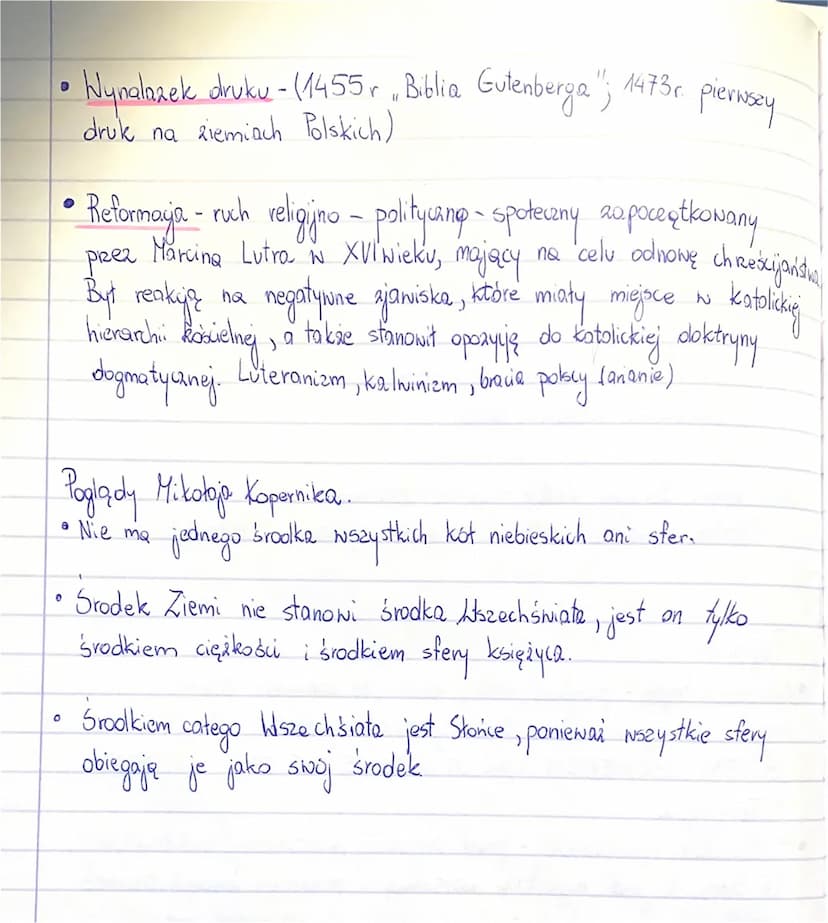 • Wynalazek druku - (1455 r „Biblia Gutenberga"; 1473r. pierwszy
druk na ziemiach Polskich)
• Reformacja - ruch religijno - polityczno - społeczny zapoczątkowany
przez Marcina Lutra w XVI wieku, mający na celu odnowę chrześcijaństwa
Był reakcją na negatywne zjawiska, które miały miejsce w katolickiej
hierarchii kościelnej, a także stanowił opozycję do katolickiej doktryny
dogmatycznej. Luteranizm, kalwinizm, bracia polscy (arianie)
Poglądy Mikołaja Kopernika.
• Nie ma jednego środka wszystkich kół niebieskich ani sfer.
• Środek Ziemi nie stanowi środka Wszechświata, jest on tylko
środkiem ciężkości i środkiem sfery księżyca.
• Środkiem całego Wszechśiata jest Słońce, ponieważ wszystkie sfery
obiegają je jako swój środek